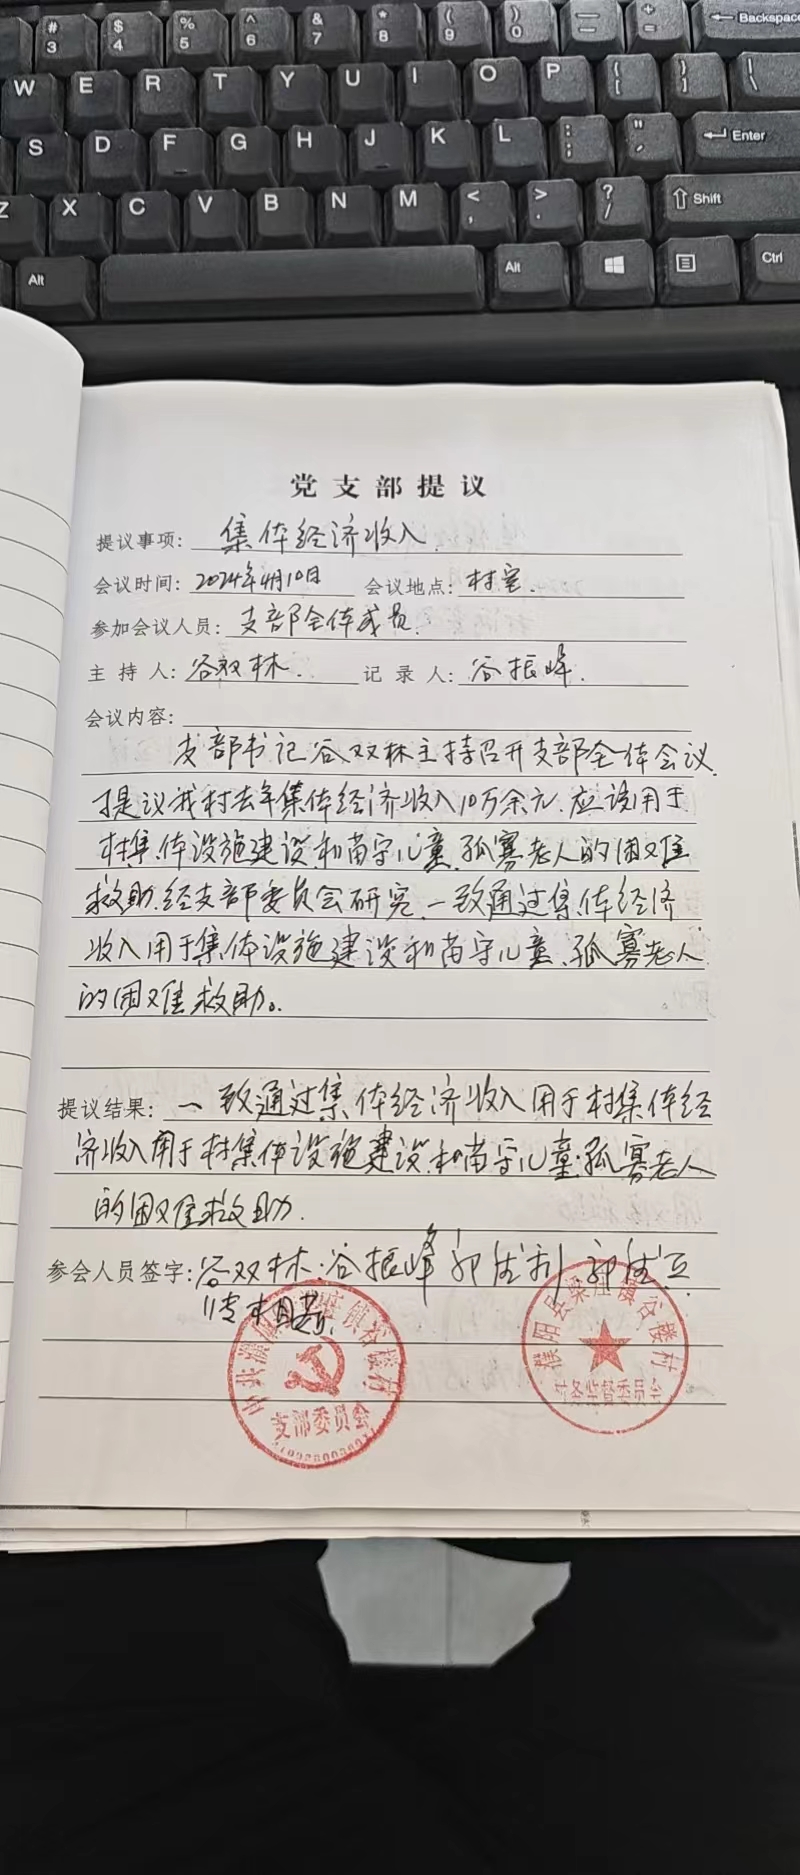 # 3
$ 4
% 5
^ 6
& 7
* 8
( 9
) 0
— -
+ =
← Backspace
W E R T Y U I O P { [ } ] | \
S D F G H J K L : ; " ' ← Enter
Z X C V B N M < , > . ? / ⇧ Shift
Alt Alt Ctrl
党支部提议
提议事项: 集体经济收入.
会议时间: 2024年4月10日 会议地点: 村室.
参加会议人员: 支部全体成员.
主持人: 谷双林. 记录人: 谷振峰.
会议内容:
支部书记谷双林主持召开支部全体会议.
提议我村去年集体经济收入10万余元.应该用于
村集体设施建设和苗守儿童.孤寡老人的困难
救助.经支部委员会研究.一致通过集体经济
收入用于集体设施建设和苗守儿童.孤寡老人
的困难救助。
提议结果: 一致通过集体经济收入用于村集体经
济收入用于村集体设施建设和苗守儿童.孤寡老人
的困难救助.
参会人员签字: 谷双林.谷振峰
支部委员会
濮阳县梁庄镇谷楼村
村务监督委员会